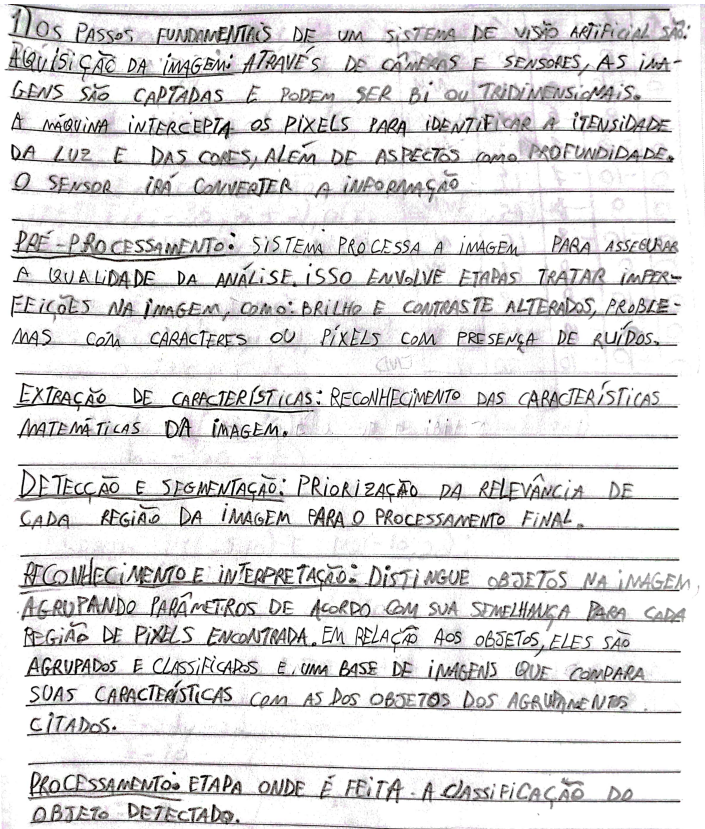 1) OS PASSOS FUNDAMENTAIS DE UM SISTEMA DE VISÃO ARTIFICIAL SÃO:
AQUISIÇÃO DA IMAGEM: ATRAVÉS DE CÂMERAS E SENSORES, AS IMA-
GENS SÃO CAPTADAS E PODEM SER BI OU TRIDIMENSIONAIS.
A MÁQUINA INTERCEPTA OS PIXELS PARA IDENTIFICAR A ITENSIDADE
DA LUZ E DAS CORES, ALÉM DE ASPECTOS COMO PROFUNDIDADE.
O SENSOR IRÁ CONVERTER A INFORMAÇÃO
PRÉ-PROCESSAMENTO: SISTEMA PROCESSA A IMAGEM PARA ASSEGURAR
A QUALIDADE DA ANÁLISE. ISSO ENVOLVE ETAPAS TRATAR IMPER-
FEIÇÕES NA IMAGEM, COMO: BRILHO E CONTRASTE ALTERADOS, PROBLE-
MAS COM CARACTERES OU PÍXELS COM PRESENÇA DE RUÍDOS.
EXTRAÇÃO DE CARACTERÍSTICAS: RECONHECIMENTO DAS CARACTERÍSTICAS
MATEMÁTICAS DA IMAGEM.
DETECÇÃO E SEGMENTAÇÃO: PRIORIZAÇÃO DA RELEVÂNCIA DE
CADA REGIÃO DA IMAGEM PARA O PROCESSAMENTO FINAL.
RECONHECIMENTO E INTERPRETAÇÃO: DISTINGUE OBJETOS NA IMAGEM,
AGRUPANDO PARÂMETROS DE ACORDO COM SUA SEMELHANÇA PARA CADA
REGIÃO DE PIXELS ENCONTRADA. EM RELAÇÃO AOS OBJETOS, ELES SÃO
AGRUPADOS E CLASSIFICADOS E, UMA BASE DE IMAGENS QUE COMPARA
SUAS CARACTERÍSTICAS COM AS DOS OBJETOS DOS AGRUPAMENTOS
CITADOS.
PROCESSAMENTO: ETAPA ONDE É FEITA A CLASSIFICAÇÃO DO
OBJETO DETECTADO.